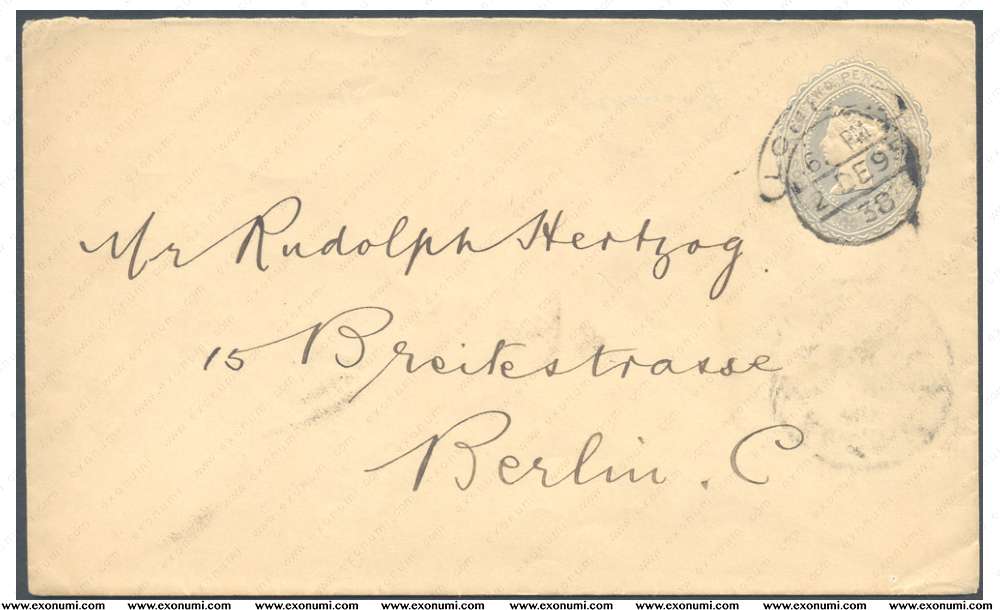 TWO PENCE
LO
PM
DE 9
38
Mr Rudolph Hertzog.
15 Breitestrasse
Berlin. C
www.exonumi.com www.exonumi.com www.exonumi.com www.exonumi.com www.exonumi.com www.exonumi.com www.exonumi.com www.exonumi.com